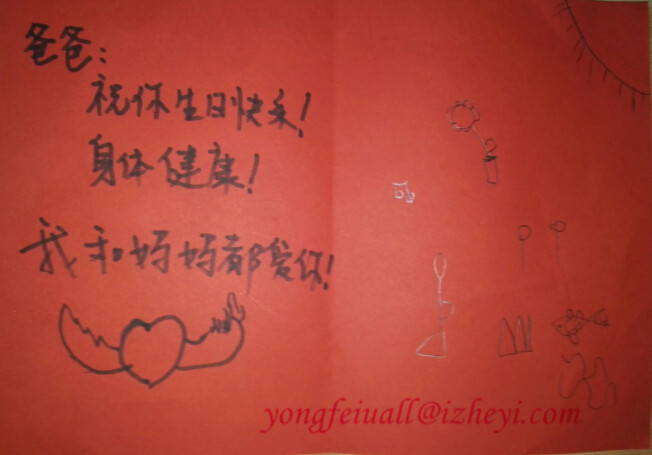 爸爸：
祝你生日快乐！
身体健康！
我和妈妈都爱你！
yongfeiuall@izheyi.com